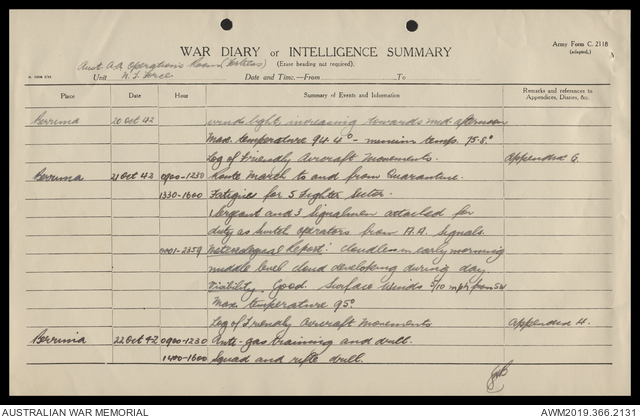 WAR DIARY or INTELLIGENCE SUMMARY
(Erase heading not required).
Army Form C. 2118
(adapted.)
Aust. A.A. Operations Room
Unit N.T. Force
Date and Time.—From To
Place Date Hour Summary of Events and Information Remarks and references to Appendices, Diaries, &c.
Berrima 20 Oct 42 winds light increasing towards mid-afternoon
Max. temperature 94.4° - temp. 75.8°
Log of Friendly Aircraft Movements. Appended G.
Berrima 21 Oct 42 0900-1230 Route March to and from Quarantine.
1330-1600 Fatigues for 5 Fighter Sector.
1 Sergeant and 3 Signalmen attached for
duty as switch operators from A.A. Signals
0001-2359 Meteorological Report: Cloudless in early morning
middle level cloud developing during day.
Visibility. Good Surface winds 5/10 mph from SW
Max temperature 95°
Log of Friendly Aircraft Movements Appended H.
Berrima 22 Oct 42 0900-1230 Anti-gas training and drill.
1400-1600 Squad and rifle drill.
AUSTRALIAN WAR MEMORIAL
AWM2019.366.2131